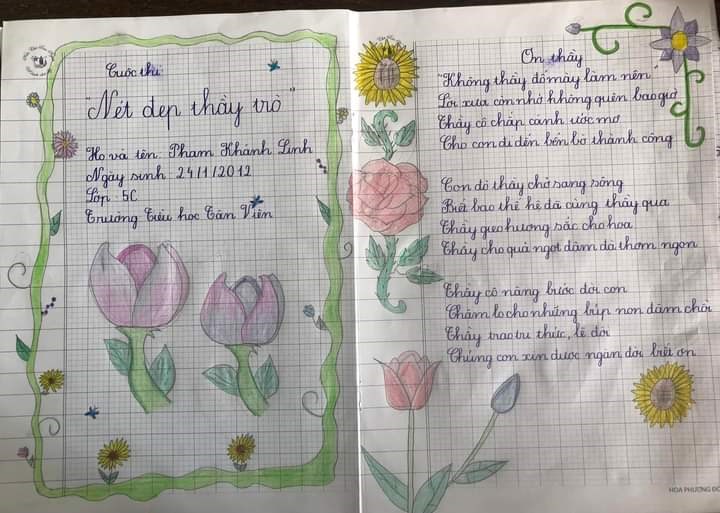 Cuộc thi
"Nét đẹp thầy trò"
Họ và tên: Phạm Khánh Linh
Ngày sinh 24/1/2012
Lớp: 5C
Trường Tiểu học Tân Viên
Ơn thầy
"Không thầy đố mày làm nên"
Lời xưa còn nhớ không quên bao giờ
Thầy cô chắp cánh ước mơ
Cho con đi đến bến bờ thành công
Con đò thầy chở sang sông
Biết bao thế hệ đã cùng thầy qua
Thầy gieo hương sắc cho hoa
Thầy cho quả ngọt đậm đà thơm ngon
Thầy cô nâng bước đời con
Chăm lo cho những búp non đâm chồi
Thầy trao tri thức, lẽ đời
Chúng con xin được ngàn đời biết ơn
HOA PHƯỢNG ĐỎ